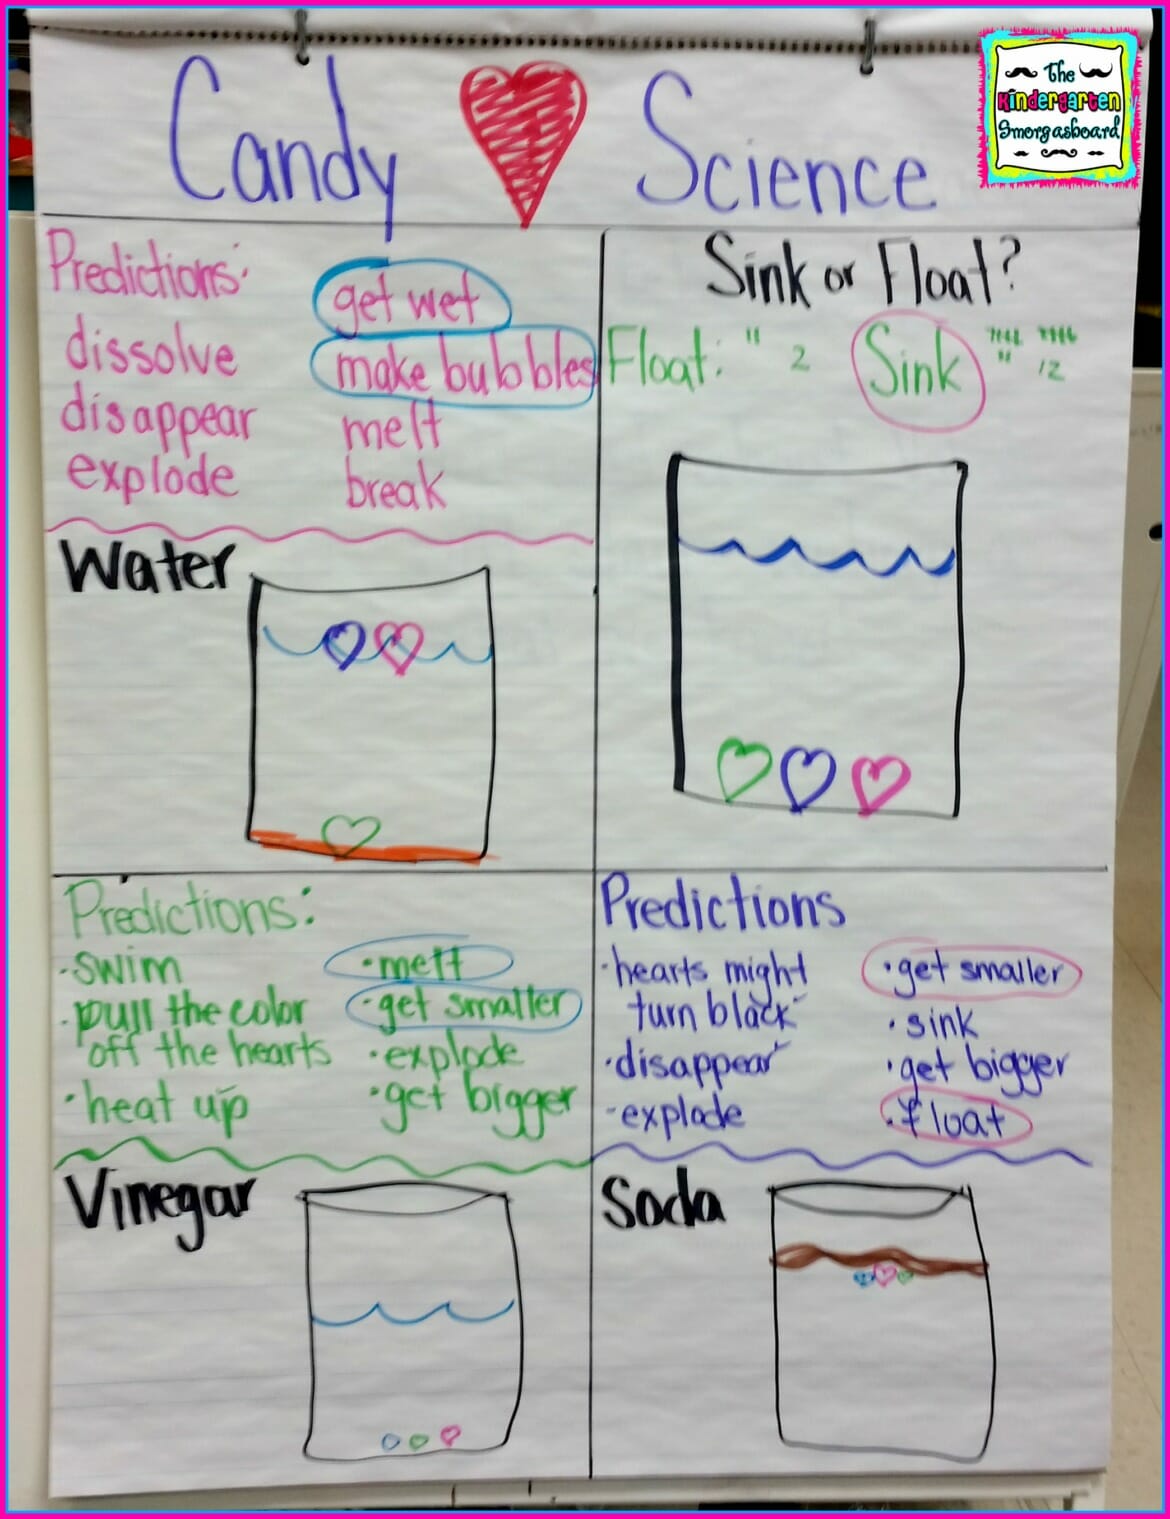 The
Kindergarten
Smorgasboard
Candy Science
Predictions:
get wet
dissolve
make bubbles
disappear
melt
explode
break
Sink or Float?
Float: " 2 Sink
" 12
Water
Predictions:
· swim
· pull the color
off the hearts
· heat up
· melt
· get smaller
· explode
· get bigger
Vinegar
Predictions
· hearts might
turn black
· disappear
- explode
· get smaller
· sink
· get bigger
· float
Soda